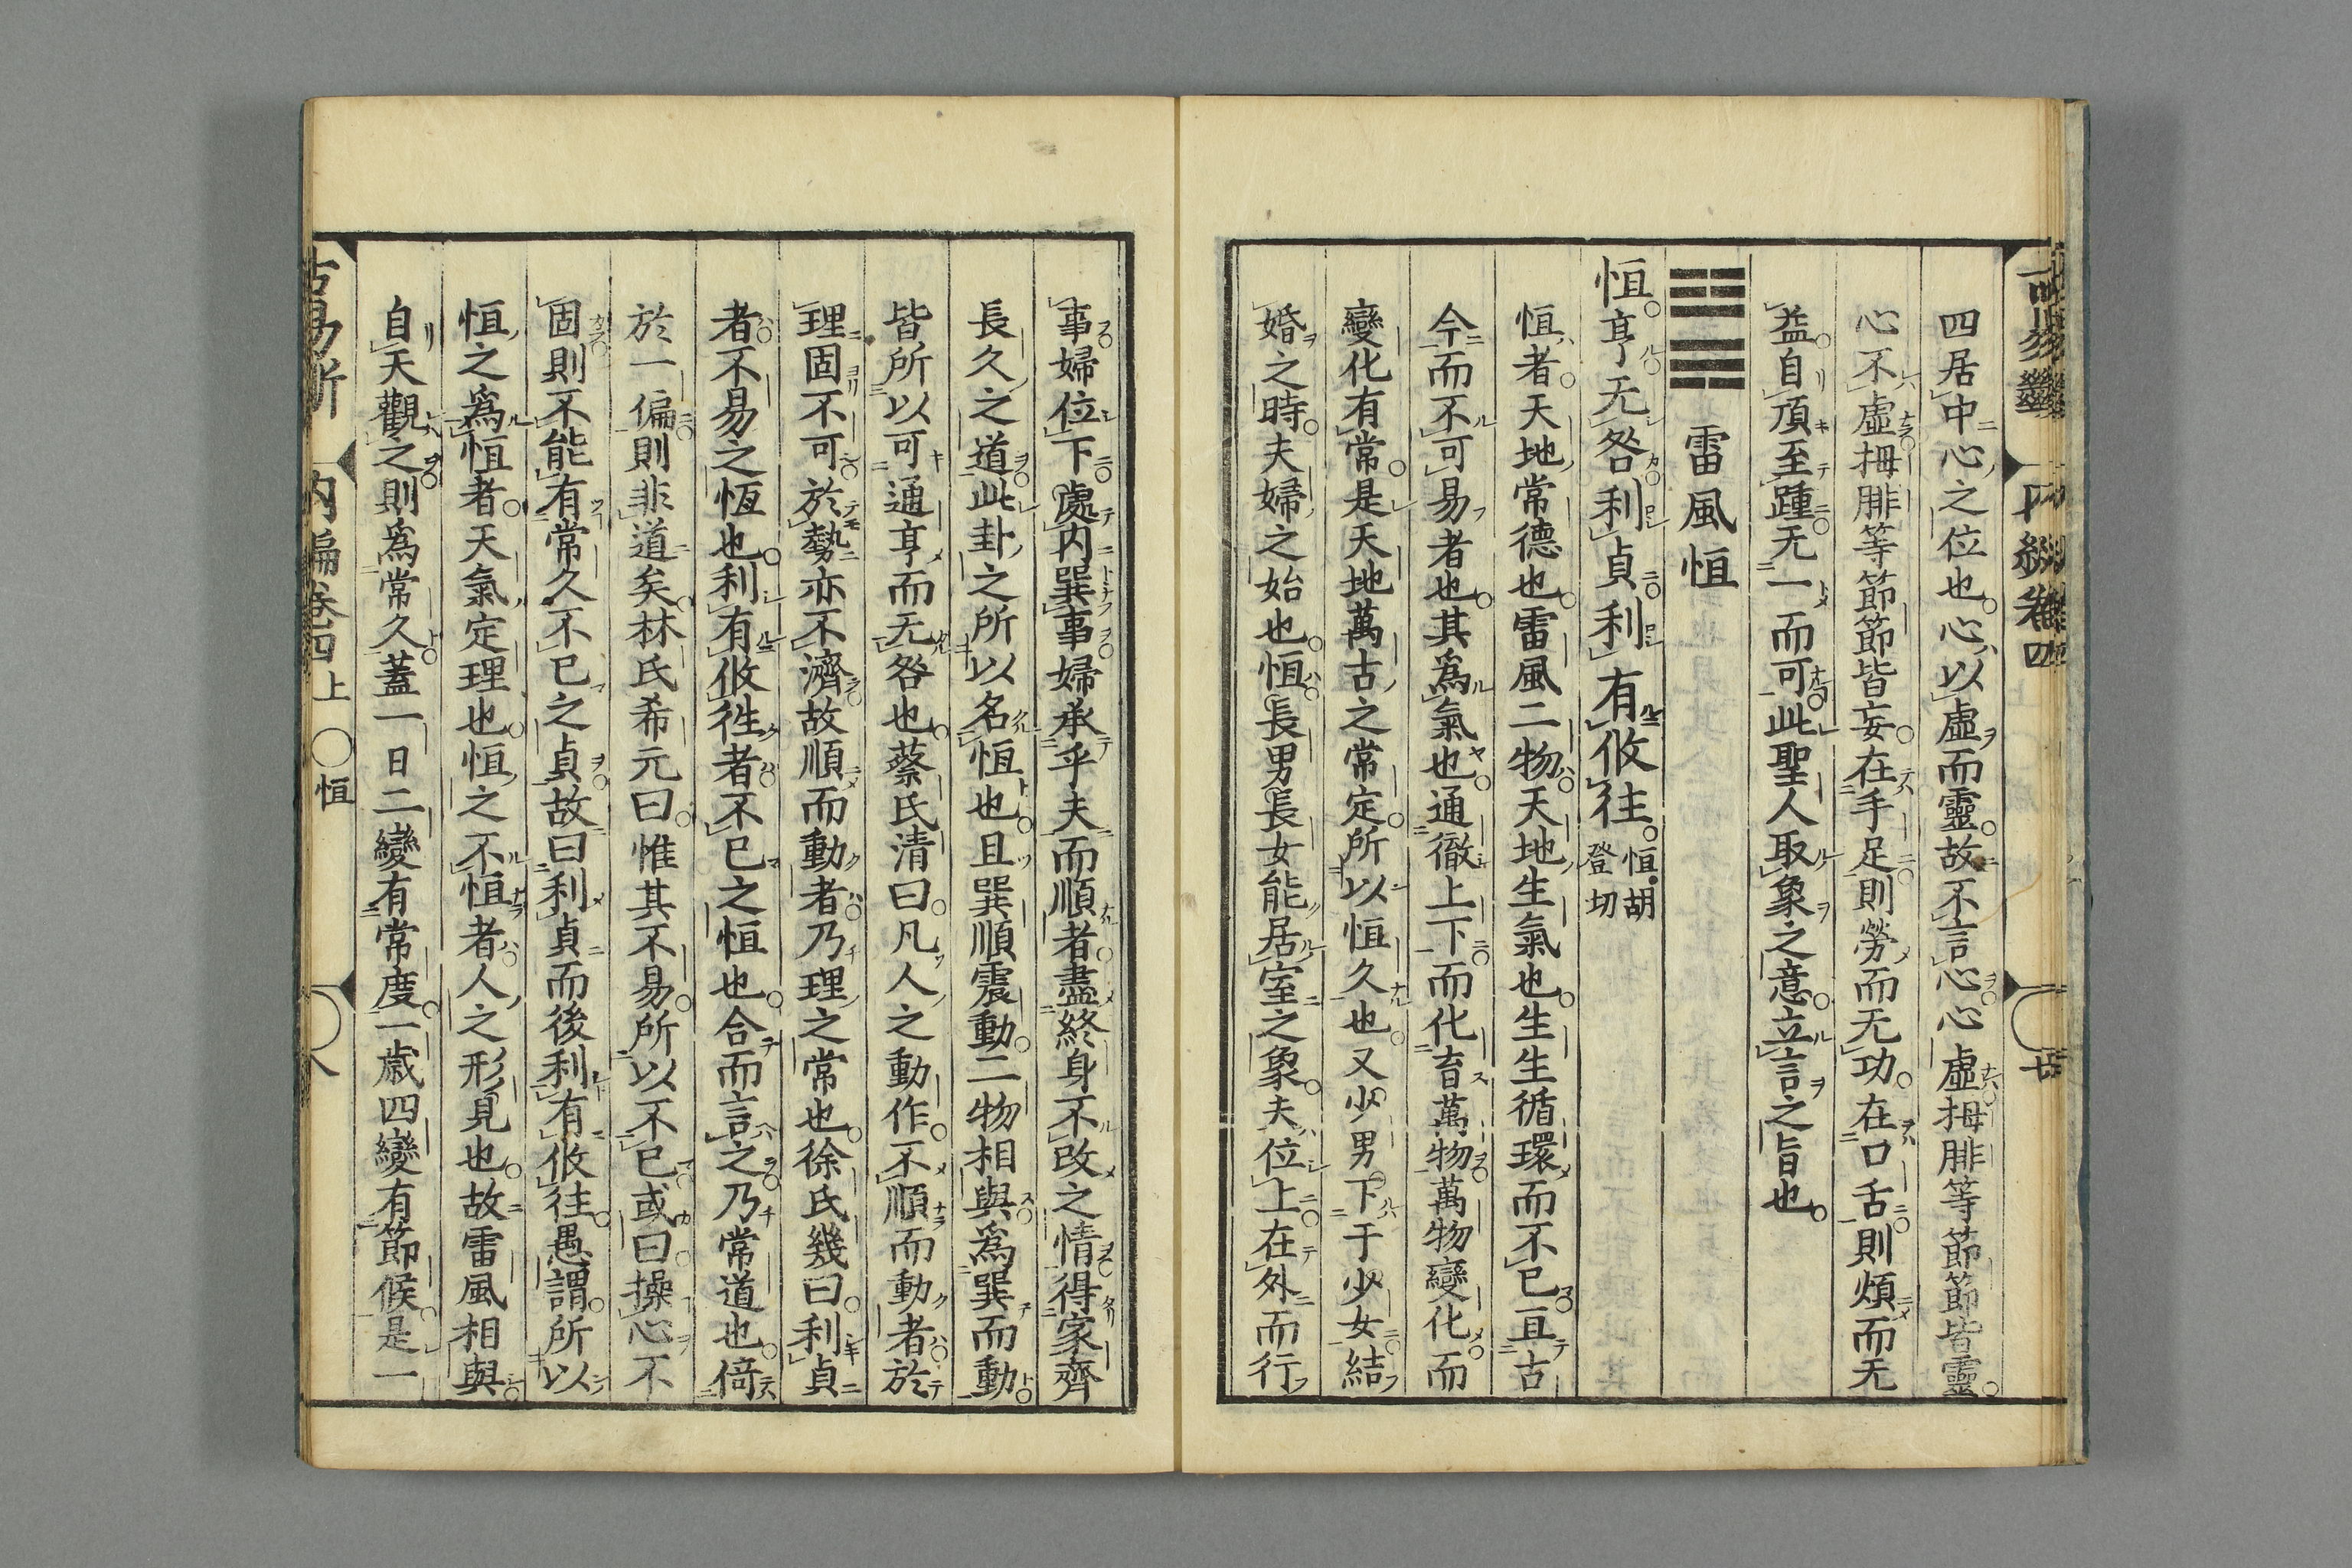 四居中心之位也心以虛而靈故不言心心虛拇腓等節節皆靈
心不虛拇腓等節節皆妄在手足則勞而无功在口舌則煩而无
益自頂至踵无一而可此聖人取象之意立言之旨也
雷風恒
恒亨无咎利貞利有攸往恒胡登切
恒者天地常德也雷風二物天地生氣也生生循環而不已亘古
今而不可易者也其爲氣也通徹上下而化育萬物萬物變化而
變化有常是天地萬古之常定所以恒久也又少男下于少女結
婚之時夫婦之始也恒長男長女能居室之象夫位上在外而行
事婦位下處内巽事婦承乎夫而順者盡終身不改之情得家齊
長久之道此卦之所以名恒也且巽順震動二物相與爲巽而動
皆所以可通亨而无咎也蔡氏清曰凡人之動作不順而動者於
理固不可於勢亦不濟故順而動者乃理之常也徐氏幾曰利貞
者不易之恆也利有攸徃者不已之恒也合而言之乃常道也倚
於一偏則非道矣林氏希元曰惟其不易所以不已或曰操心不
固則不能有常久不已之貞故曰利貞而後利有攸往愚謂所以
恒之爲恒者天氣定理也恒之不恒者人之形見也故雷風相與
自天觀之則爲常久蓋一日二變有常度一歲四變有節候是一
古易斷 内編卷四上 〇恒